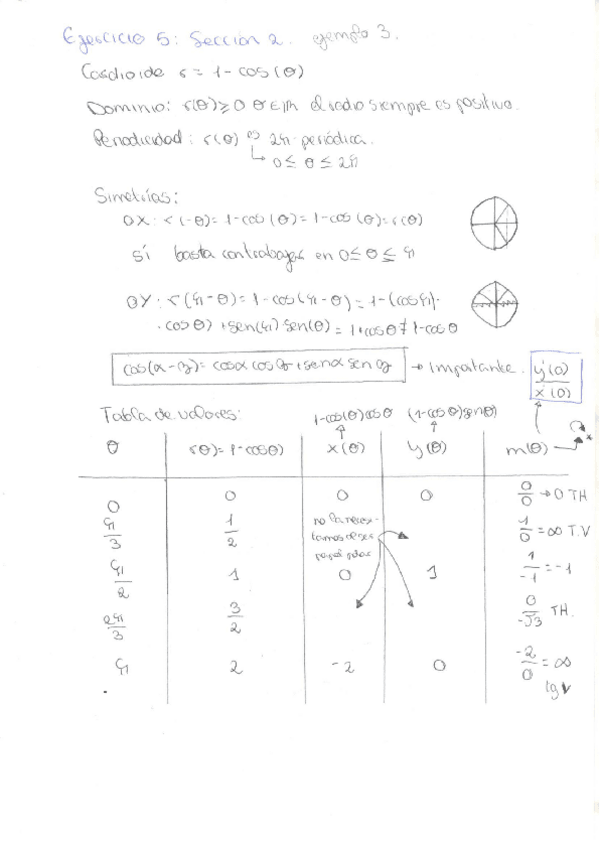 Ejercicio 5: Sección 2. ejemplo 3.
Cardioide r = 1 - cos(θ)
Dominio: r(θ) ≥ 0 θ ∈ ℝ el radio siempre es positivo.
Periodicidad: r(θ) es 2π-periódica.
↳ 0 ≤ θ ≤ 2π
Simetrías:
OX: r(-θ) = 1-cos(θ) = 1-cos(θ) = r(θ)
sí basta con trabajar en 0 ≤ θ ≤ π
OY: r(π-θ) = 1-cos(π-θ) = 1-(cos(π)·
·cosθ) + sen(π) sen(θ) = 1+cosθ ≠ 1-cosθ
cos(α-y) = cosα cos y + senα sen y → Importante. y'(θ)/x'(θ)
Tabla de valores: 1-cos(θ)cosθ (1-cosθ)senθ
θ r(θ) = 1-cosθ) x(θ) y(θ) m(θ)
0 0 0 0 0/0 → 0 TH
π/3 1/2 no la neces- 1/0 = ∞ T.V
tamos
π/2 1 0 1 1/-1 = -1
2π/3 3/2 0/-√3 TH.
π 2 -2 0 -2/0 = ∞
tg v